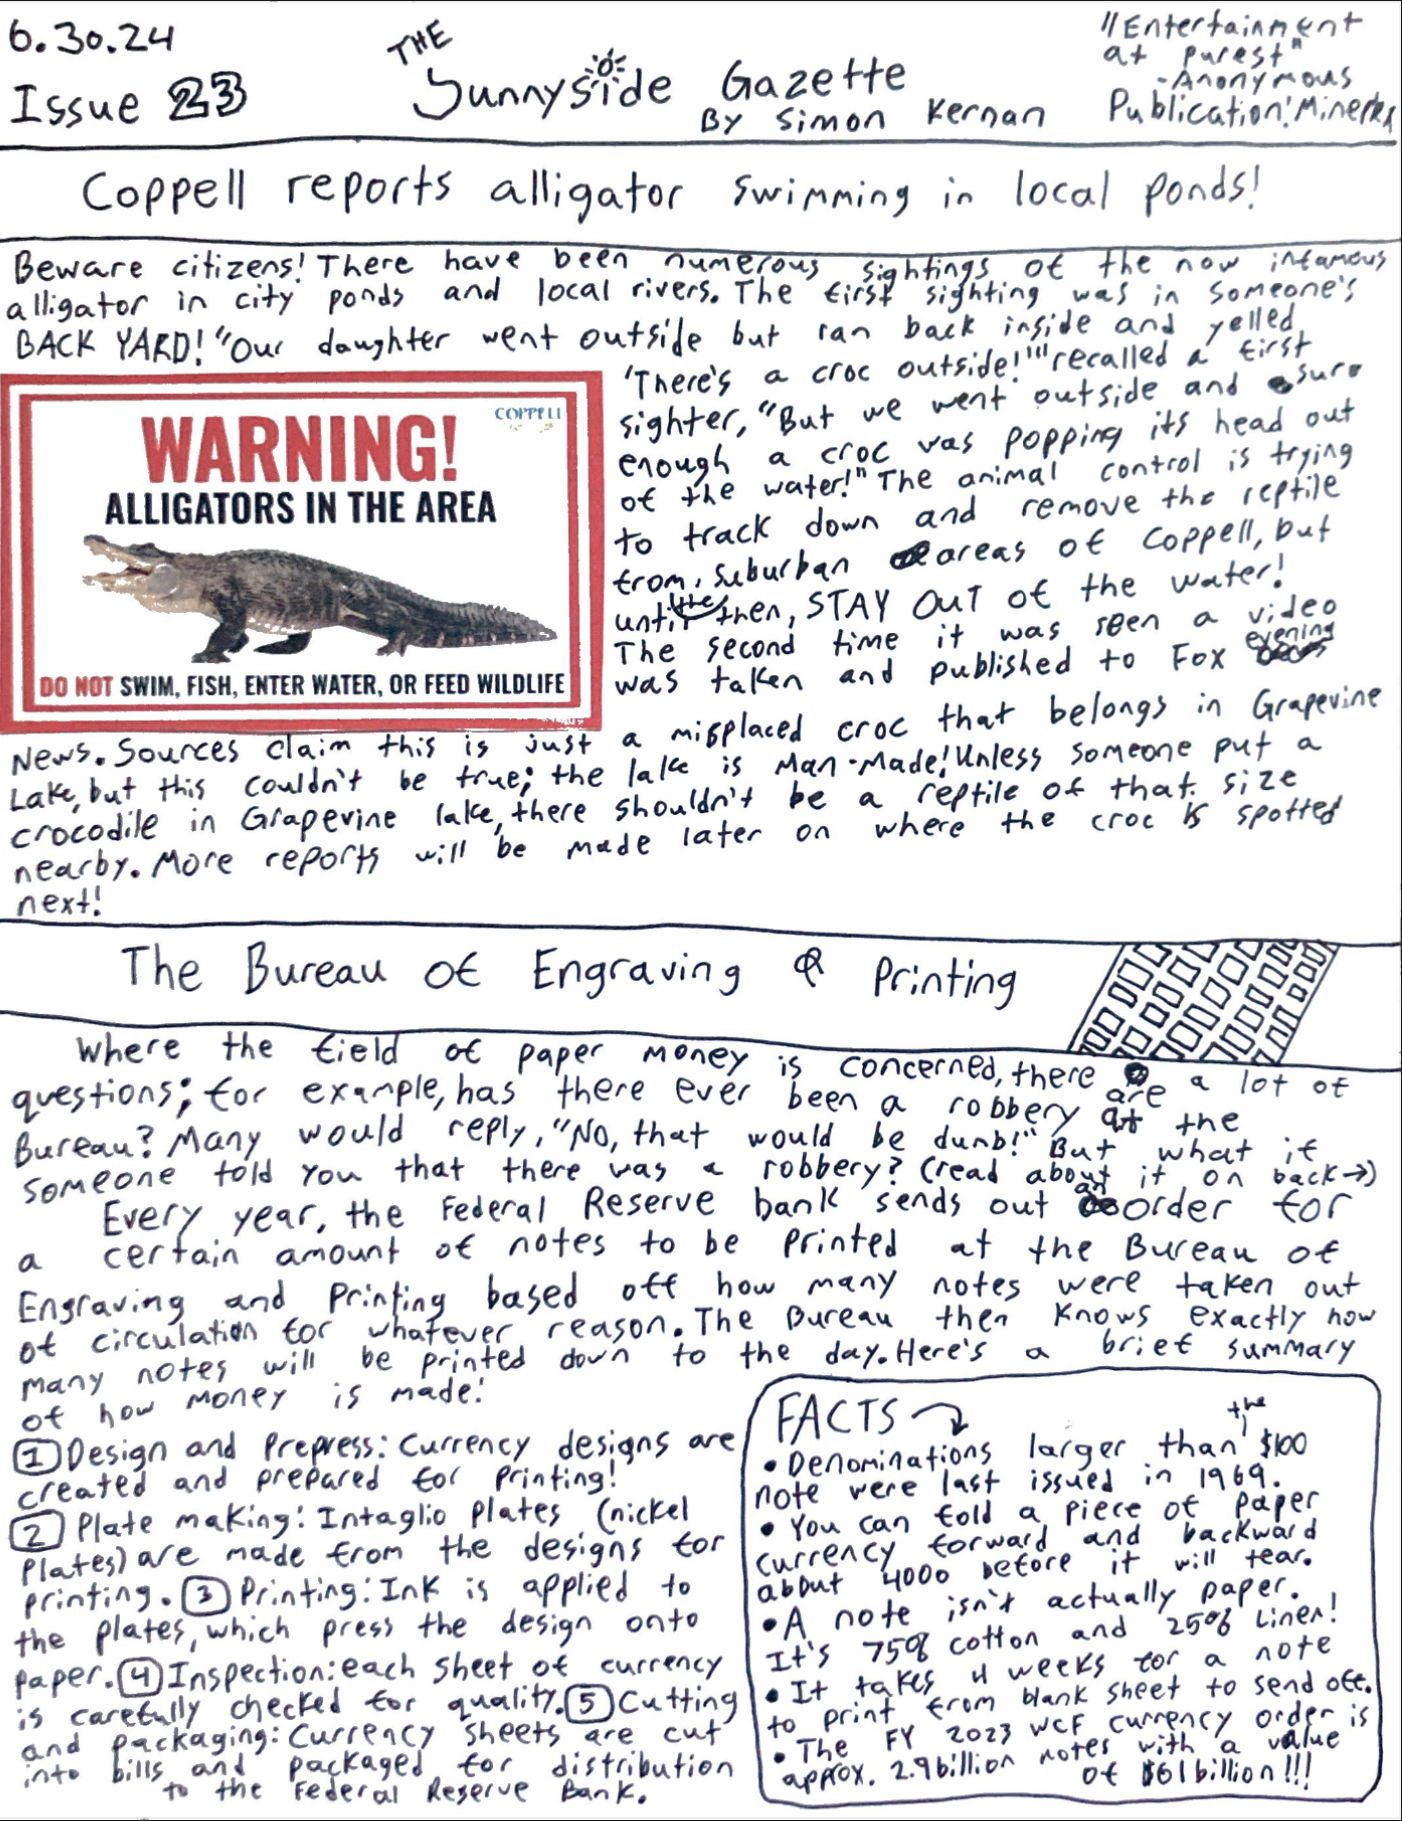 6.30.24
Issue 23
THE
Sunnyside Gazette
By Simon Kernan
"Entertainment
at purest"
-Anonymous
Publication: Minerks
Coppell reports alligator swimming in local ponds!
Beware citizens! There have been numerous sightings of the now infamous
alligator in city ponds and local rivers. The first sighting was in someone's
BACK YARD! "Our daughter went outside but ran back inside and yelled,
'There's a croc outside!'" recalled a first
sighter, "But we went outside and sure
enough a croc was popping its head out
of the water!" The animal control is trying
to track down and remove the reptile
from the suburban areas of Coppell, but
until then, STAY OUT of the water!
The second time it was seen a video
was taken and published to Fox evening
WARNING!
COPPELL
ALLIGATORS IN THE AREA
DO NOT SWIM, FISH, ENTER WATER, OR FEED WILDLIFE
News. Sources claim this is just a misplaced croc that belongs in Grapevine
Lake, but this couldn't be true; the lake is Man-Made! Unless someone put a
crocodile in Grapevine lake, there shouldn't be a reptile of that size
nearby. More reports will be made later on where the croc is spotted
next!
The Bureau of Engraving & Printing
Where the field of paper money is concerned, there are a lot of
questions; for example, has there ever been a robbery at the
Bureau? Many would reply, "No, that would be dumb!" But what if
someone told you that there was a robbery? (read about it on back→)
Every year, the Federal Reserve bank sends out an order for
a certain amount of notes to be printed at the Bureau of
Engraving and Printing based off how many notes were taken out
of circulation for whatever reason. The Bureau then knows exactly how
many notes will be printed down to the day. Here's a brief summary
of how money is made:
1 Design and Prepress: Currency designs are
created and prepared for printing!
2 Plate making: Intaglio plates (nickel
plates) are made from the designs for
printing. 3 Printing: Ink is applied to
the plates, which press the design onto
paper. 4 Inspection: each sheet of currency
is carefully checked for quality. 5 Cutting
and packaging: Currency sheets are cut
into bills and packaged for distribution
to the Federal Reserve Bank.
FACTS
• Denominations larger than the $100
note were last issued in 1969.
• You can fold a piece of paper
currency forward and backward
about 4000 before it will tear.
• A note isn't actually paper.
It's 75% cotton and 25% Linen!
• It takes 4 weeks for a note
to print from blank sheet to send off.
• The FY 2023 WCF currency order is
approx. 2.9 billion notes with a value
of $61 billion!!!